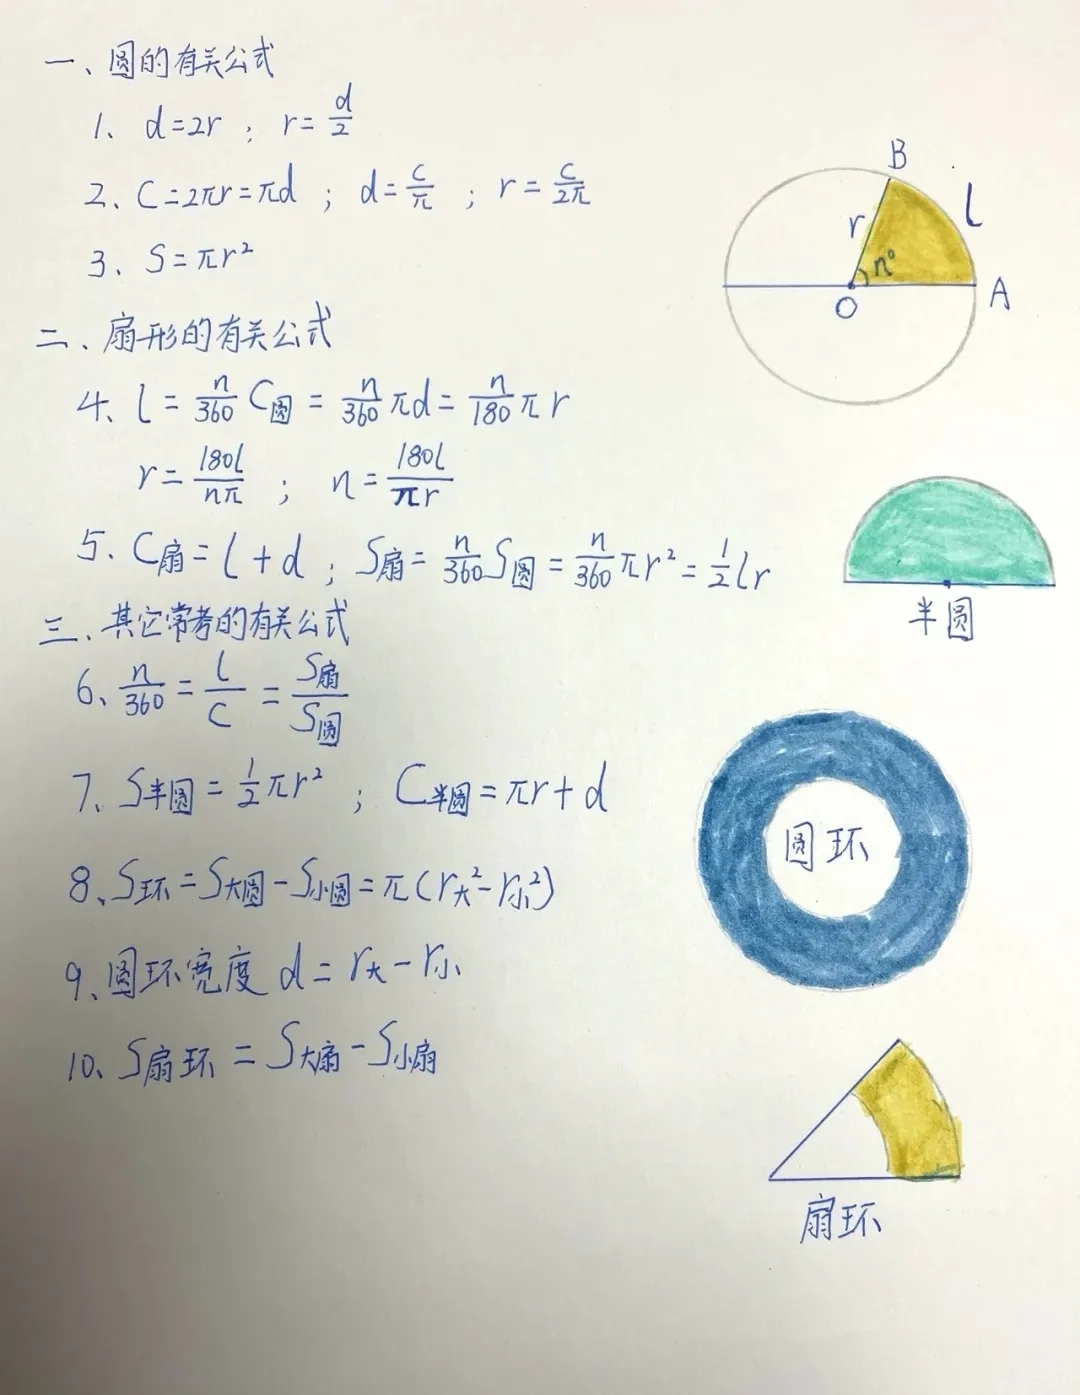 一、圆的有关公式
1、d=2r ; r=d/2
2、C=2πr=πd ; d=C/π ; r=C/2π
3、S=πr²
二、扇形的有关公式
4、l=n/360 C圆=n/360 πd=n/180 πr
r=180l/nπ ; n=180l/πr
5、C扇=l+d ; S扇=n/360 S圆=n/360 πr²=1/2 lr
三、其它常考的有关公式
6、n/360=l/C=S扇/S圆
7、S半圆=1/2 πr² ; C半圆=πr+d
8、S环=S大圆-S小圆=π(r大²-r小²)
9、圆环宽度 d=r大-r小
10、S扇环=S大扇-S小扇
B
l
r
n°
O
A
半圆
圆环
扇环